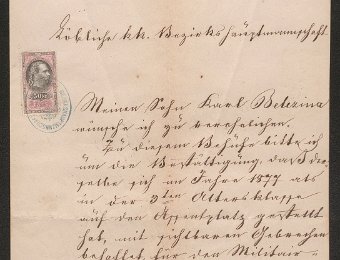 Löbliche kk. Bezirkshauptmannschaft
Meinen Sohn Karl
wünsche ich zu verehelichen.
Zu diesem Behufe bitte ich
um die Bestättigung, daß der-
selbe sich im Jahre 1877 als
in der 3ten Altersklasse
auf den Assentplatz gestellt
hat, mit sichtbaren Gebrechen
behaftet, für den Militair-